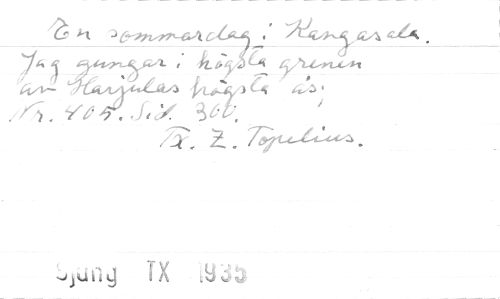 En sommardag i Kangasala.
Jag gungar i högsta grenen
av Harjulas högsta ås;
Nr. 405. Sid. 300.
Tx. Z. Topelius.
Sjung TX 1935